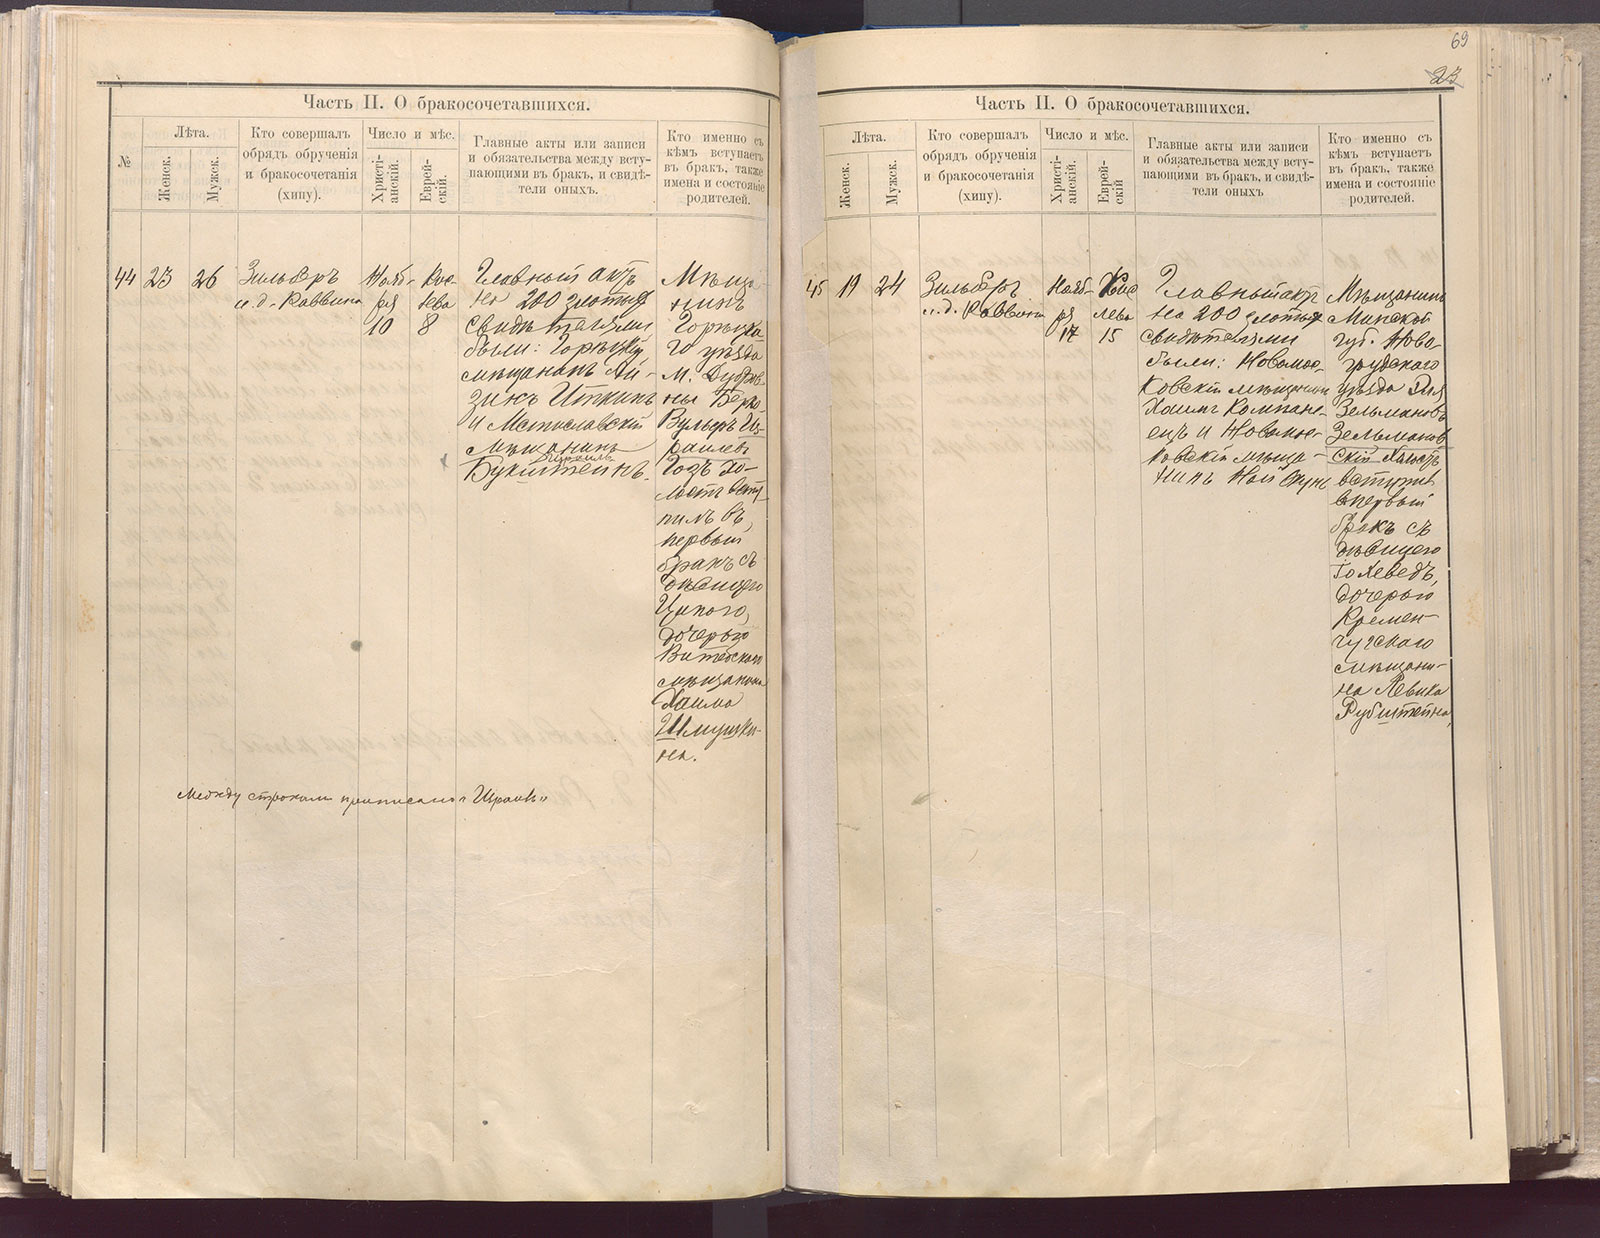 Часть II. О бракосочетавшихся.
№
Лѣта.
Женск.
Мужск.
Кто совершалъ
обрядъ обрученія
и бракосочетанія
(хипу).
Число и мѣс.
Христі-
анскій.
Еврей-
скій.
Главные акты или записи
и обязательства между всту-
пающими въ бракъ, и свидѣ-
тели оныхъ.
Кто именно съ
кѣмъ вступаетъ
въ бракъ, также
имена и состояніе
родителей.
44
23
26
Зильберъ
и.д. Раввина
Нояб-
ря
10
Кис-
лева
8
Главный актъ
на 200 злотыхъ
свидѣтелями
были: Горецкій
мѣщанинъ Ай-
зикъ Иткинъ
и Мстиславскій
мѣщанинъ
Израиль
Букштейнъ.
Мѣща-
нинъ
Горецка-
го уѣзда
м. Дубров-
ны Берко-
Вульфъ Из-
раилевъ
вступ-
пилъ въ
первый
бракъ съ
дѣвицею
Ципою,
дочерью
Витебскаго
мѣщанина
Хаима
Шмушки-
на.
Между строками приписано „Израиль"
69
23
Часть II. О бракосочетавшихся.
Лѣта.
Женск.
Мужск.
Кто совершалъ
обрядъ обрученія
и бракосочетанія
(хипу).
Число и мѣс.
Христі-
анскій.
Еврей-
скій
Главные акты или записи
и обязательства между всту-
пающими въ бракъ, и свидѣ-
тели оныхъ
Кто именно съ
кѣмъ вступаетъ
въ бракъ, также
имена и состояніе
родителей.
45
19
24
Зильберъ
и.д. Раввина
Нояб-
ря
17
Кис
лева
15
Главный актъ
на 200 злотыхъ
свидѣтелями
были: Новомос-
ковскій мѣщанин
Хаимъ Компане-
ецъ и Новомос-
ковскій мѣща-
нинъ Ной
Мѣщанинъ
Минской
губ. Ново-
грудскаго
уѣзда
Зельмановъ
Зельманов
скій холостъ
вступил
въ первый
бракъ съ
дѣвицею
Іохеведъ,
дочерью
Кремен-
чугскаго
мѣщани-
на Левика
Рубштейна